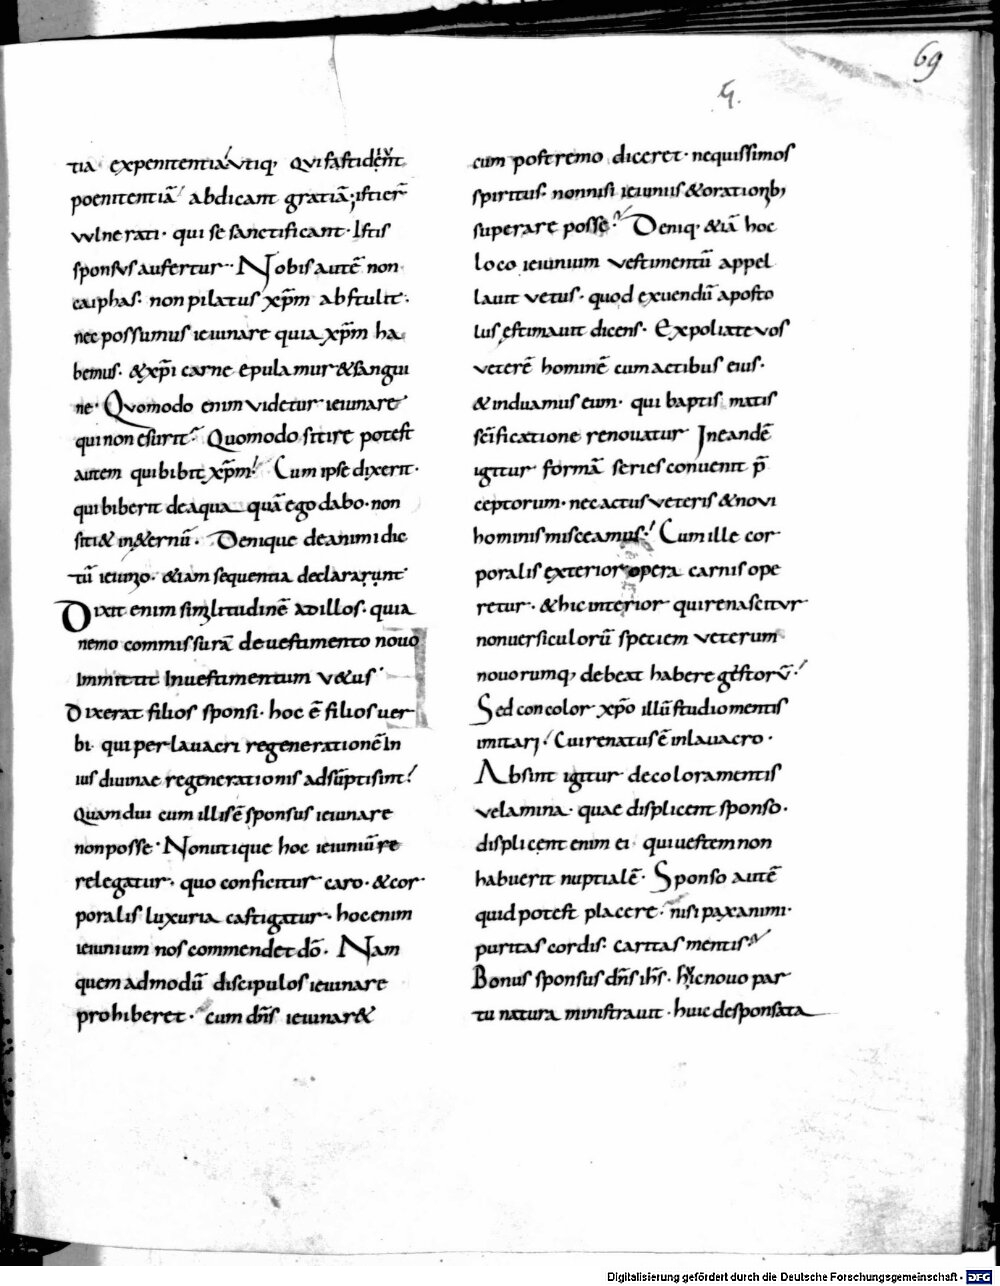 69
G.
tia expenitentia utiq; qui fastident
poenitentiā abdicant gratiā; isti er̄
vulnerati· qui se sanctificant· Istis
sponsus aufertur·· Nobis autē non
caiphas· non pilatus xp̄m abstulit·
nec possumus ieiunare quia xp̄m ha
bemus· & xp̄i carne epulamur & sangui
ne· Quomodo enim videtur ieiunare
qui non esurit? Quomodo sitire potest
autem qui bibit xp̄m? Cum ipse dixerit·
qui biberit de aqua quā ego dabo· non
siti& in &ernū· Denique de animi dic
tū ieiunio· &iam sequentia declararunt
Dixit enim similitudinē ad illos· quia
nemo commissurā de uestimento nouo
Immittit In uestimentum v&us·
Dixerat filios sponsi· hoc ē filios uer
bi· qui per lauacri regenerationē In
ius diuinae regenerationis adsūpti sint!
quamdiu cum illis ē sponsus ieiunare
non posse· Non utique hoc ieiuniū re
relegatur· quo conficitur caro· & cor
poralis luxuria castigatur· hoc enim
ieiunium nos commendet dō· Nam
quem admodū discipulos ieiunare
prohiberet· cum dn̄s ieiunar&
cum postremo diceret· nequissimos
spiritus· non nisi ieiuniis & orationib;
superare posse? Deniq· &iā hoc
loco ieiunium vestimentū appel
lauit vetus· quod exuendū aposto
lus estimauit dicens· Expoliate vos
veterē hominē cum actibus eius·
& induamus eum· qui baptismatis
sc̄ificatione renouatur In eandē
igitur formā series conuenit p̄
ceptorum· nec actus veteris & novi
hominis misceamus! Cum ille cor
poralis exterior opera carnis ope
retur· & hic interior qui renascitur
non versiculorū speciem veterum
nouorumq; debeat habere gestorū!
Sed concolor xp̄o illū studio mentis
imitari! Cui renatus ē in lauacro·
Absint igitur decolora mentis
velamina· quae displicent sponso·
displicent enim ei qui uestem non
habuerit nuptialē· Sponso autē
quid potest placere· nisi pax animi·
puritas cordis· caritas mentis
Bonus sponsus dn̄s ih̄s· hic nouo par
tu natura ministrauit· huic desponsata
Digitalisierung gefördert durch die Deutsche Forschungsgemeinschaft - DFG